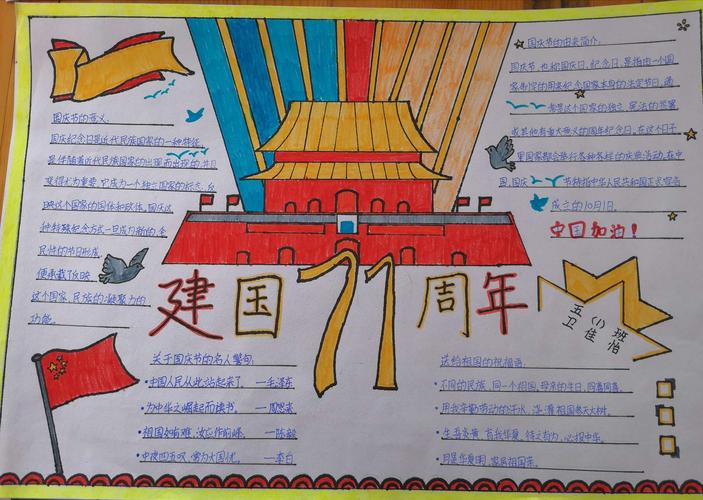 国庆节的意义:
国庆纪念日是近代民族国家的一种特征,
是伴随着近代民族国家的出现而出现的,并且
变得尤为重要。它成为一个独立国家的标志,反
映这个国家的国体和政体。国庆这
种特殊纪念方式一旦成为新的、全
民性的节日形式,
便承载了反映
这个国家、民族的凝聚力的
功能。
国庆节的由来简介:
国庆节也称国庆日、纪念日,是指由一个国
家制定的用来纪念国家本身的法定节日,通
常是这个国家的独立、宪法的签署
或其他有重大意义的周年纪念日。在这个日子
里国家都会举行各种各样的庆典活动。在中
国,国庆节特指中华人民共和国正式宣告
成立的10月1日。
中国加油!
建国71周年
五(1)班
卫佳怡
关于国庆节的名人警句:
·中国人民从此站起来了。—毛泽东
·为中华之崛起而读书。—周恩来
·祖国如有难,汝应作前锋。—陈毅
·中夜四五叹,常为大国忧。—李白
送给祖国的祝福语:
·不同的民族,同一个祖国,母亲的生日,同喜同喜。
·用我辛勤劳动的汗水,浇灌祖国参天大树。
·生吾炎黄,育我华夏,待之有为,必报中华。
·月是华夏明,家是祖国亲。